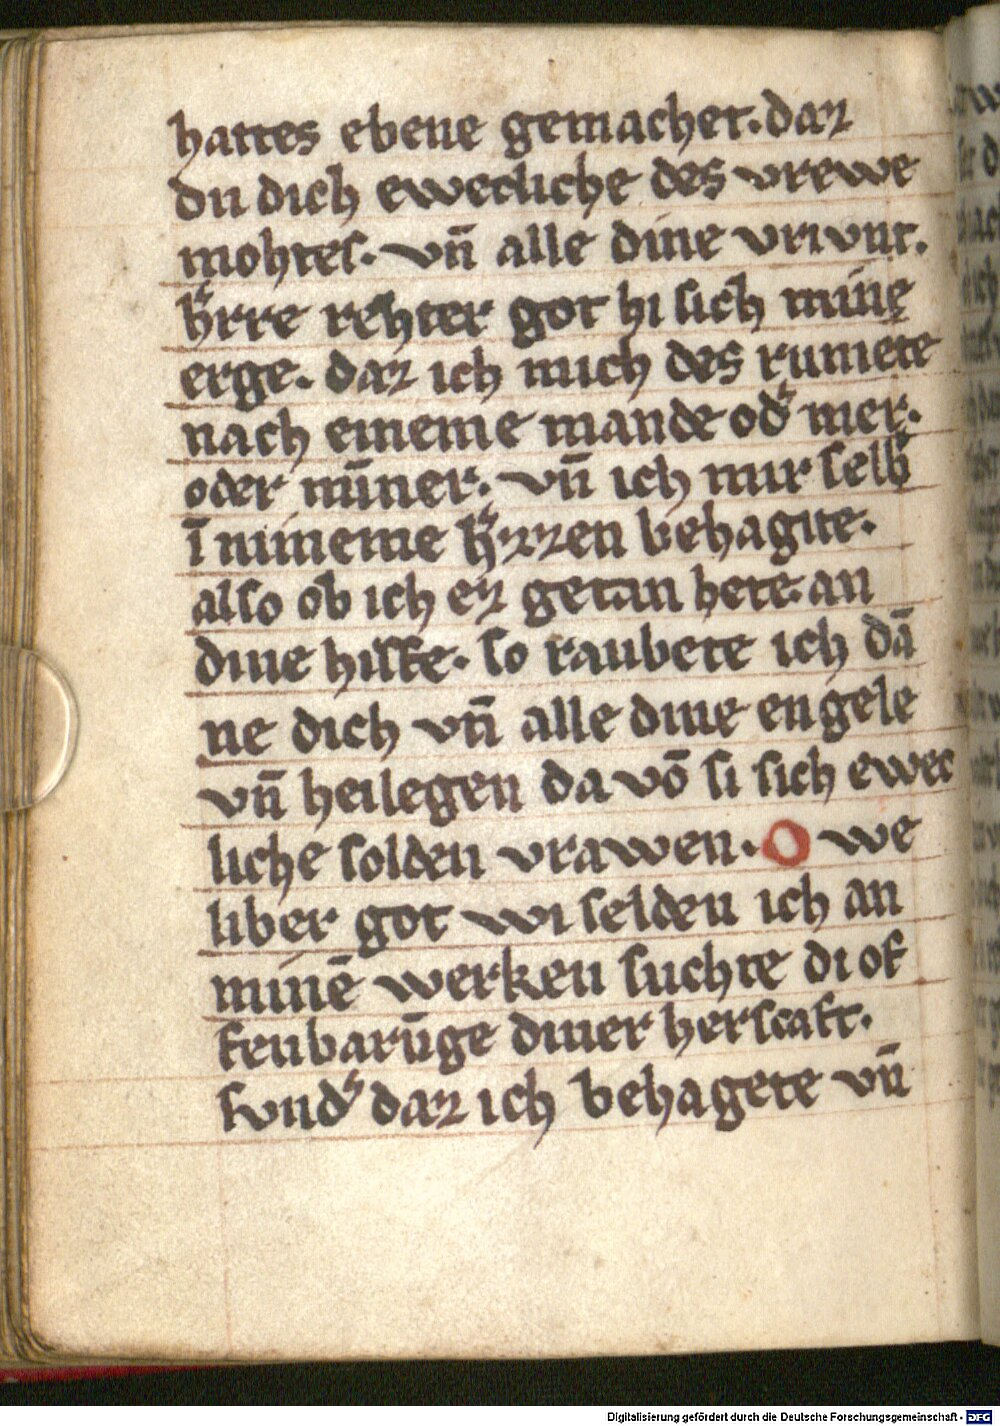 hattes ebene gemachet. daz
du dich eweclliche des vrewe
mohtes. vn̄ alle dine vrivnt.
h͛rre rehter got hi sich mine
erge. daz ich mich des rumete
nach eineme mande od͛ mer.
oder mīner. vn̄ ich mir selb͛
ī mineme h͛zzen behagite.
also ob ich ez getan hete. an
dine hilfe. so raubete ich dā
ne dich vn̄ alle dine engele
vn̄ heilegen da vō si sich ewec
liche solden vrawen. O we
liber got wi selden ich an
minē werken suchte di of
fenbarūge diner herscaft.
svnd͛ daz ich behagete vn̄
Digitalisierung gefördert durch die Deutsche Forschungsgemeinschaft - DFG